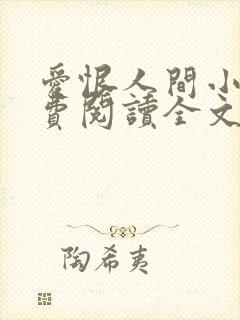 愛恨人間小
費閱讀全文
陶希夷